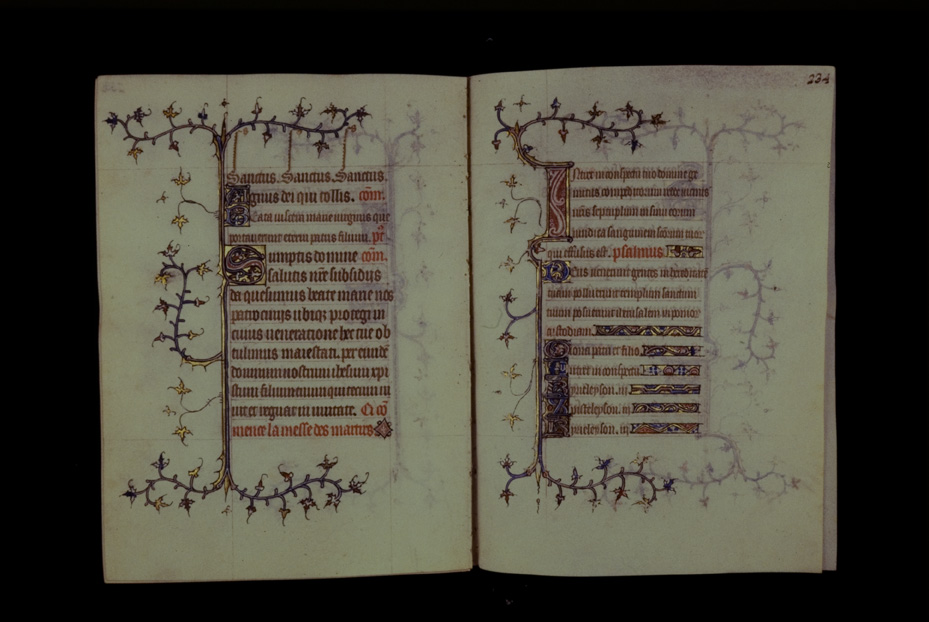 Sanctus. Sanctus. Sanctus.
Agnus dei qui tollis. com̄.
Beata viscera marie virginis que
portaverunt eterni patris filium. pt̄
Sumptis domine com̄.
salutis nr̄e subsidiis
da quesumus beate marie nos
patrociniis ubiqȝ protegi in
cuius veneratione hec tue ob
tulimus maiestati. per eundē
dominum nostrum ihesum xpi
stum filium tuum qui tecum vi
vit et regnat in unitate. Ci cō
mence la messe des martirs
234
Intret in conspectu tuo domine ge
mitus compeditorum redde vicinis
nostris septuplum in sinu eorum
vindica sanguinem sc̄orum tuor
qui effusus est. psalmus
Deus venerunt gentes in hereditatē
tuam polluerunt templum sanctum
tuum posuerunt iherusalem in pomor
custodiam.
Gloria patri et filio.
Intret in conspectu.
Kyrieleyson. iii
Xpisteleyson. iii
Kyrieleyson. iii